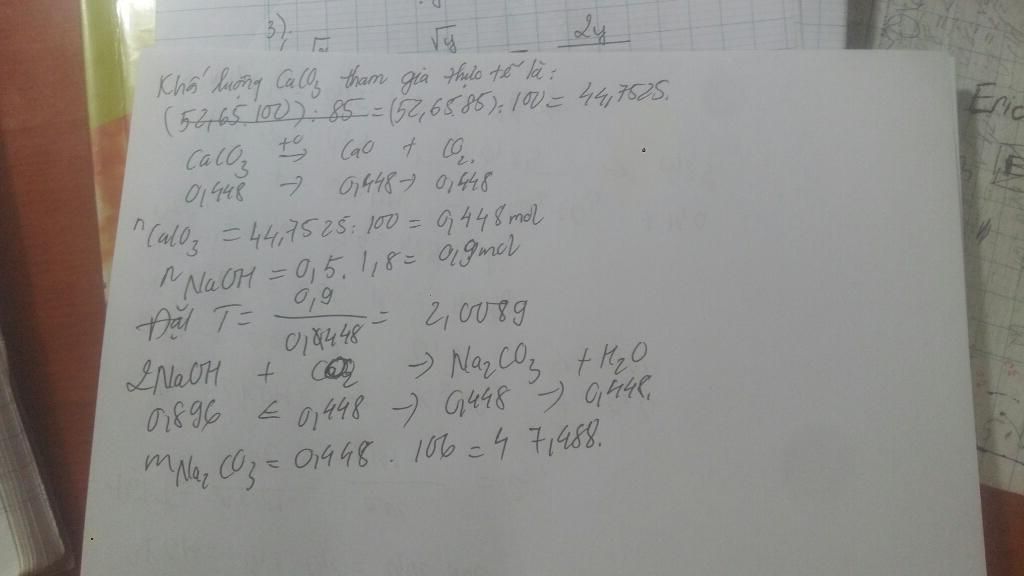 3).
√y
2y
Khối lượng CaCO3 tham gia thực tế là:
(52,65.100):85 = (52,65.85):100 = 44,7525.
CaCO3 +O → CaO + CO2.
0,448 → 0,448 → 0,448
nCaCO3 = 44,7525:100 = 0,448 mol
nNaOH = 0,5.1,8 = 0,9 mol
Đặt T = 0,9 / 0,448 = 2,0089
2NaOH + CO2 → Na2CO3 + H2O
0,896 ← 0,448 → 0,448 → 0,448.
mNa2CO3 = 0,448 . 106 = 47,488.